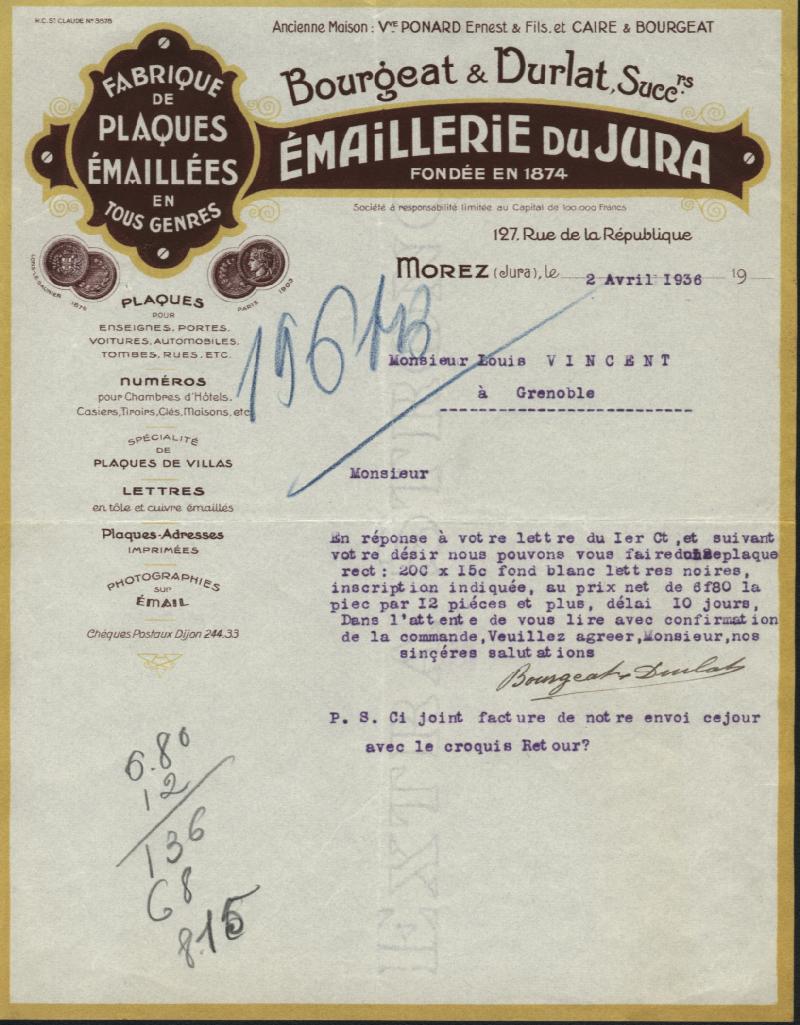 H.C. St CLAUDE No 3578
Ancienne Maison : Vve PONARD Ernest & Fils. et CAIRE & BOURGEAT
Bourgeat & Durlat, Succrs
ÉMAILLERIE DU JURA
FONDÉE EN 1874
Société à responsabilité limitée au Capital de 100.000 Francs
127. Rue de la République
FABRIQUE
DE
PLAQUES
ÉMAILLÉES
EN
TOUS GENRES
LONS-LE-SAUNIER 1875
PARIS 1903
MOREZ (Jura), le 2 Avril 1936 19
196
Monsieur Louis VINCENT
à Grenoble
PLAQUES
POUR
ENSEIGNES, PORTES,
VOITURES, AUTOMOBILES,
TOMBES, RUES, ETC.
NUMÉROS
pour Chambres d'Hôtels,
Casiers, Tiroirs, Clés, Maisons, etc.
SPÉCIALITÉ
DE
PLAQUES DE VILLAS
LETTRES
en tôle et cuivre émaillés
Plaques-Adresses
IMPRIMÉES
PHOTOGRAPHIES
SUR
ÉMAIL
Chèques Postaux Dijon 244.33
Monsieur
En réponse à votre lettre du Ier Ct ,et suivant
votre désir nous pouvons vous faire plaque
rect : 20C x 15c fond blanc lettres noires,
inscription indiquée, au prix net de 6f80 la
piec par 12 piéces et plus, délai 10 jours,
Dans l'attente de vous lire avec confirmation
de la commande,Veuillez agreer,Monsieur,nos
sinçéres salutations
Bourgeat & Durlat
P. S. Ci joint facture de notre envoi cejour
avec le croquis Retour?
6.80
12
136
68
8.15
EXTRA